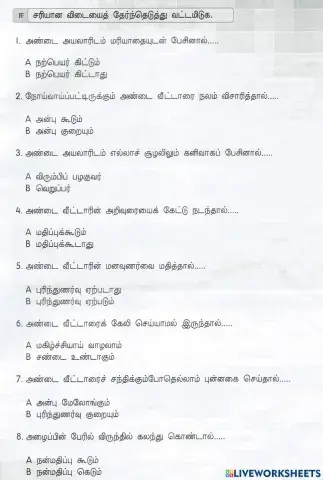 ஈ சரியான விடையைத் தேர்ந்தெடுத்து வட்டமிடுக.
1. அண்டை அயலாரிடம் மரியாதையுடன் பேசினால்.....
A நற்பெயர் கிட்டும்
B நற்பெயர் கிட்டாது
2. நோய்வாய்ப்பட்டிருக்கும் அண்டை வீட்டாரை நலம் விசாரித்தால்.....
A அன்பு கூடும்
B அன்பு குறையும்
3. அண்டை அயலாரிடம் எல்லாச் சூழலிலும் கனிவாகப் பேசினால்.....
A விரும்பிப் பழகுவர்
B வெறுப்பர்
4. அண்டை வீட்டாரின் அறிவுரையைக் கேட்டு நடந்தால்.....
A மதிப்புக்கூடும்
B மதிப்புக்கூடாது
5. அண்டை வீட்டாரின் மனவுணர்வை மதித்தால்.....
A புரிந்துணர்வு ஏற்படாது
B புரிந்துணர்வு ஏற்படும்
6. அண்டை வீட்டாரைக் கேலி செய்யாமல் இருந்தால்.....
A மகிழ்ச்சியாய் வாழலாம்
B சண்டை உண்டாகும்
7. அண்டை வீட்டாரைச் சந்திக்கும்போதெல்லாம் புன்னகை செய்தால்.....
A அன்பு மேலோங்கும்
B புரிந்துணர்வு குறையும்
8. அழைப்பின் பேரில் விருந்தில் கலந்து கொண்டால்.....
A நன்மதிப்பு கூடும்
B நன்மதிப்பு கெடும்
LIVEWORKSHEETS